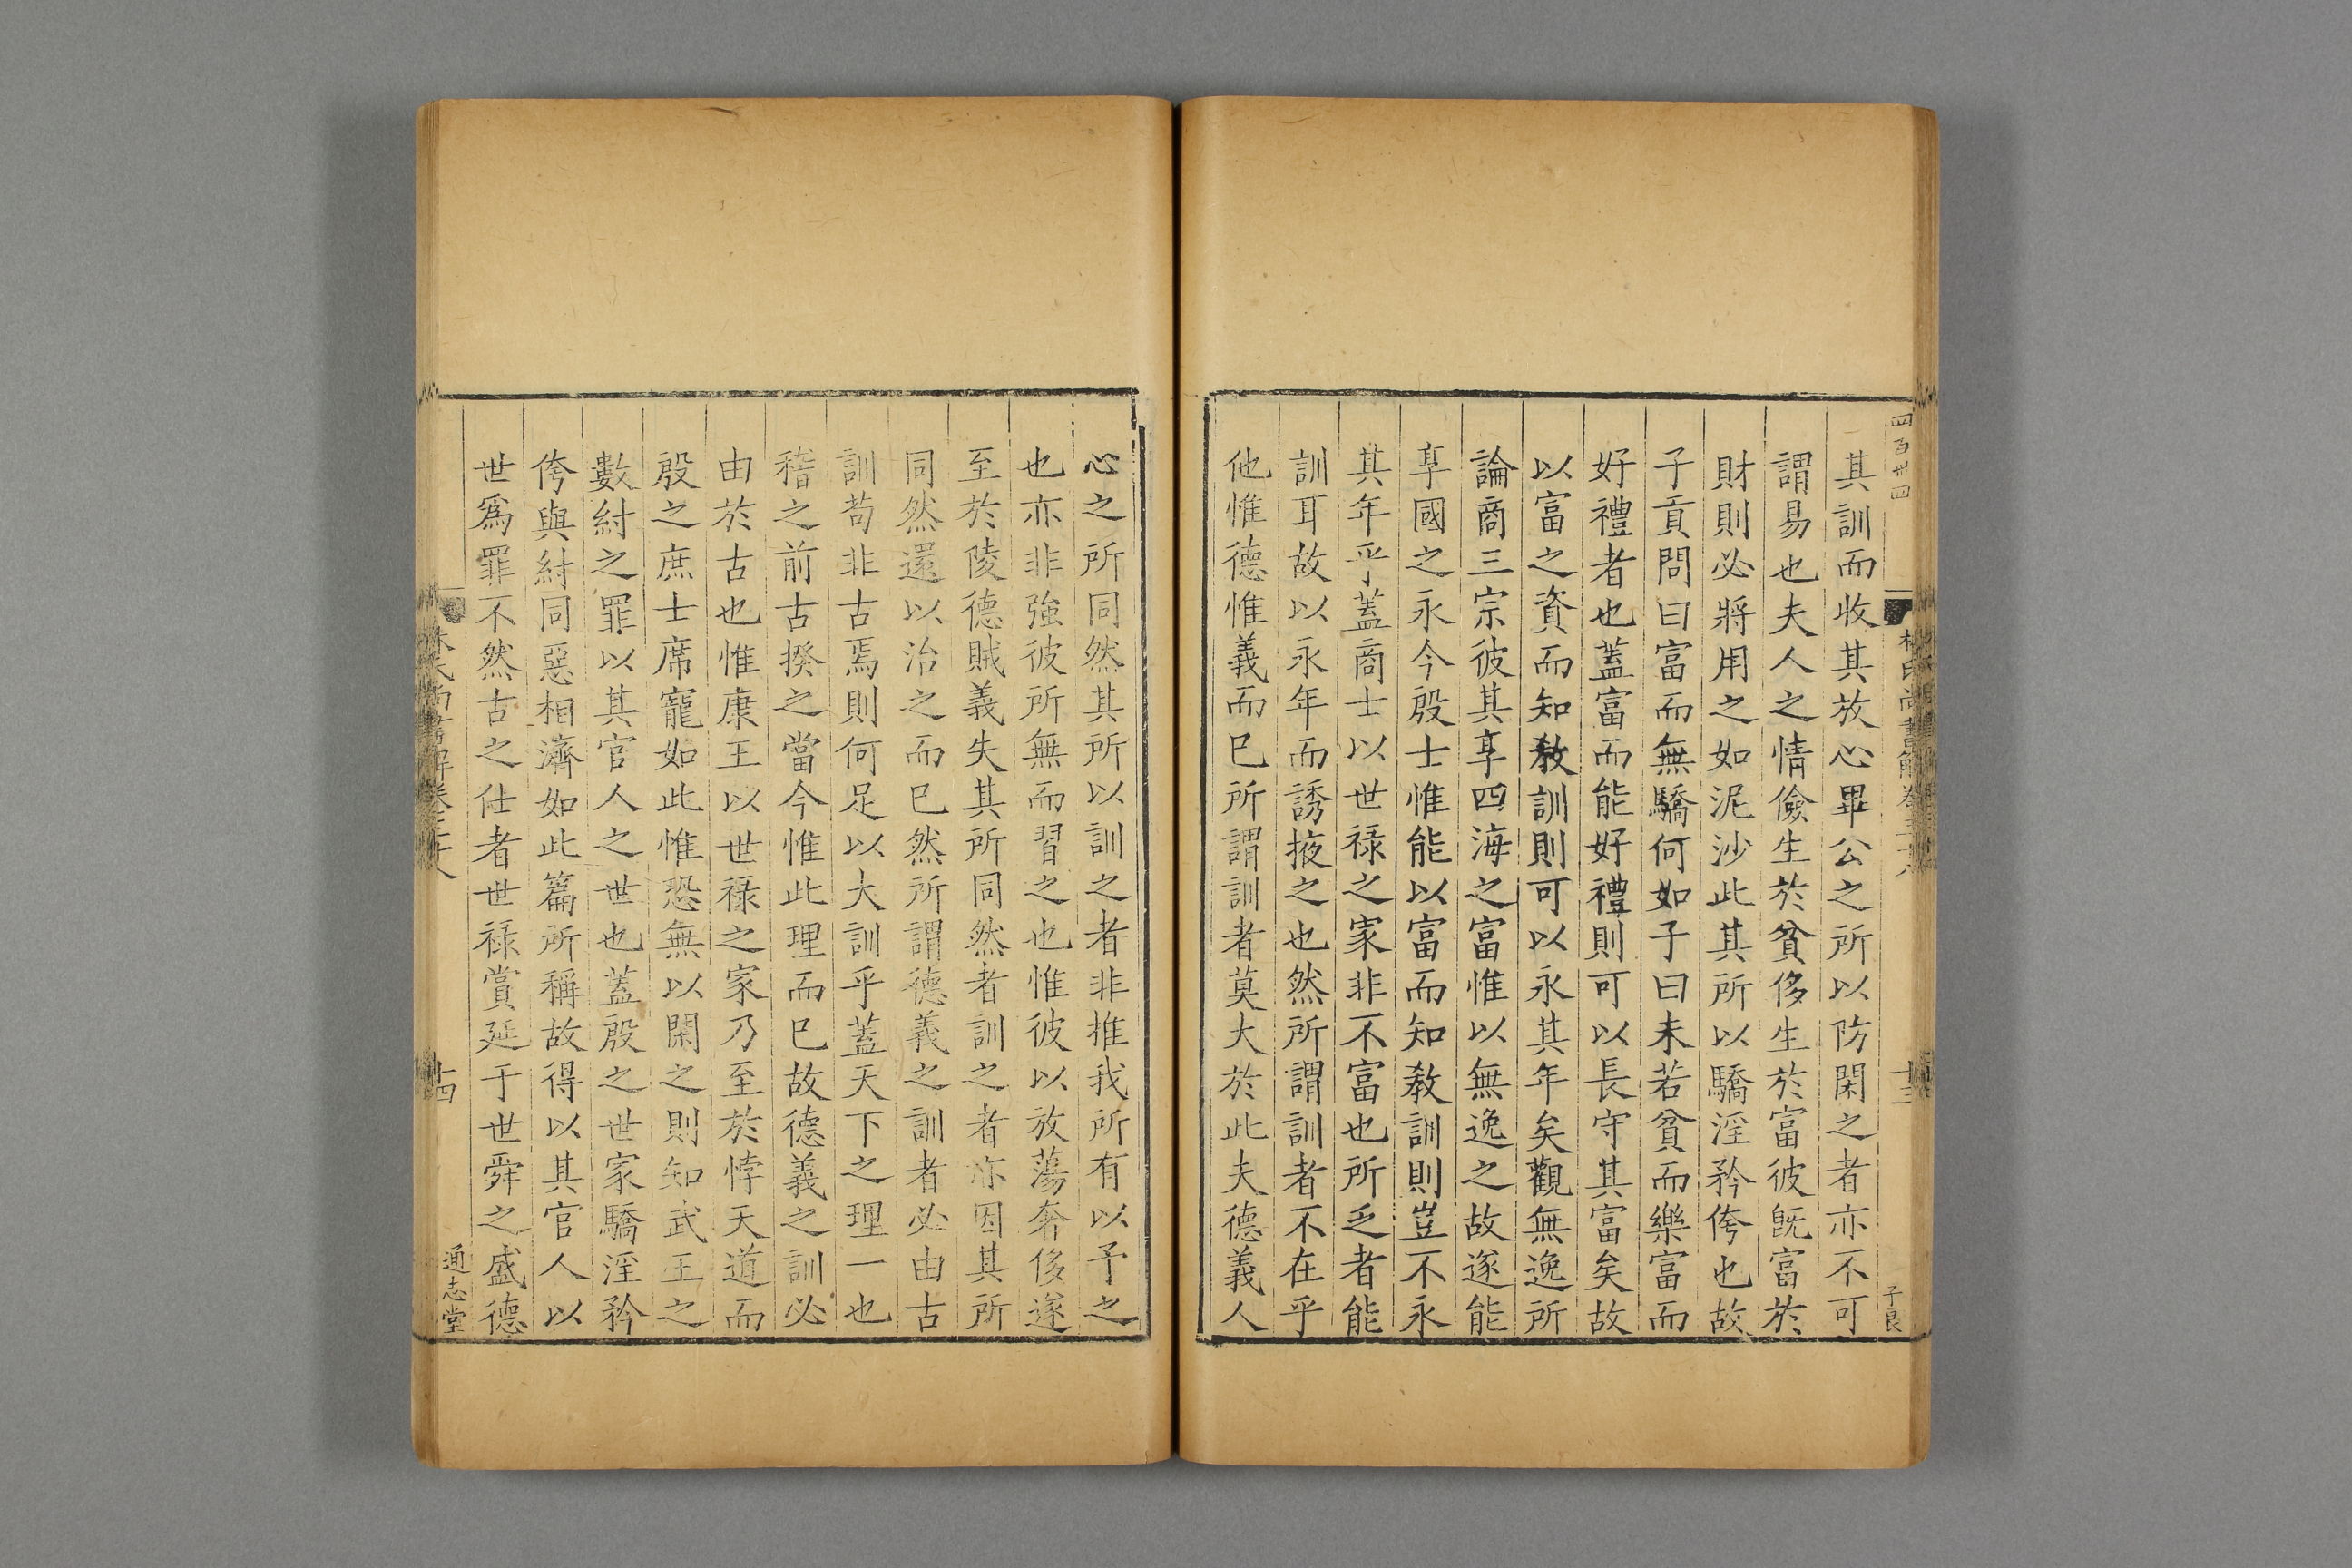 四百卅四
子良
其訓而收其放心畢公之所以防閑之者亦不可
謂易也夫人之情儉生於貧侈生於富彼旣富於
財則必將用之如泥沙此其所以驕淫矜侉也故
子貢問曰富而無驕何如子曰未若貧而樂富而
好禮者也蓋富而能好禮則可以長守其富矣故
以富之資而知敎訓則可以永其年矣觀無逸所
論商三宗彼其享四海之富惟以無逸之故遂能
享國之永今殷士惟能以富而知敎訓則豈不永
其年乎蓋商士以世祿之家非不富也所乏者能
訓耳故以永年而誘掖之也然所謂訓者不在乎
他惟德惟義而已所謂訓者莫大於此夫德義人
心之所同然其所以訓之者非推我所有以予之
也亦非強彼所無而習之也惟彼以放蕩奢侈遂
至於陵德賊義失其所同然者訓之者亦因其所
同然還以治之而已然所謂德義之訓者必由古
訓苟非古焉則何足以大訓乎蓋天下之理一也
稽之前古揆之當今惟此理而已故德義之訓必
由於古也惟康王以世祿之家乃至於悖天道而
殷之庶士席寵如此惟恐無以閑之則知武王之
數紂之罪以其官人之世也蓋殷之世家驕淫矜
侉與紂同惡相濟如此篇所稱故得以其官人以
世爲罪不然古之仕者世祿賞延于世舜之盛德
十四
通志堂